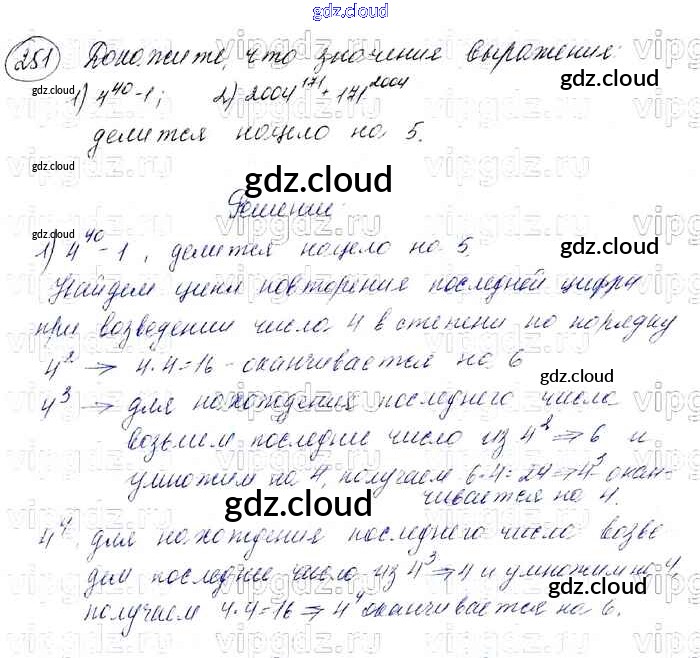 gdz.cloud
251 Докажите, что значения выражения:
1) 4^40 - 1; 2) 2004^171 + 171^2004
делится нацело на 5.
Решение:
1) 4^40 - 1, делится нацело на 5.
Найдем цикл повторения последней цифры
при возведении числа 4 в степени по порядку
4^2 → 4·4=16 - оканчивается на 6
4^3 → для нахождения последнего числа
возьмем последнее число из 4^2 ⇒ 6 и
умножим на 4, получаем 6·4=24 ⇒ 4^3 окан-
чивается на 4.
4^4, для нахождения последнего число возь
дем последнее число из 4^3 ⇒ 4 и умножим на 4
получаем 4·4=16 ⇒ 4^4 оканчивается на 6.